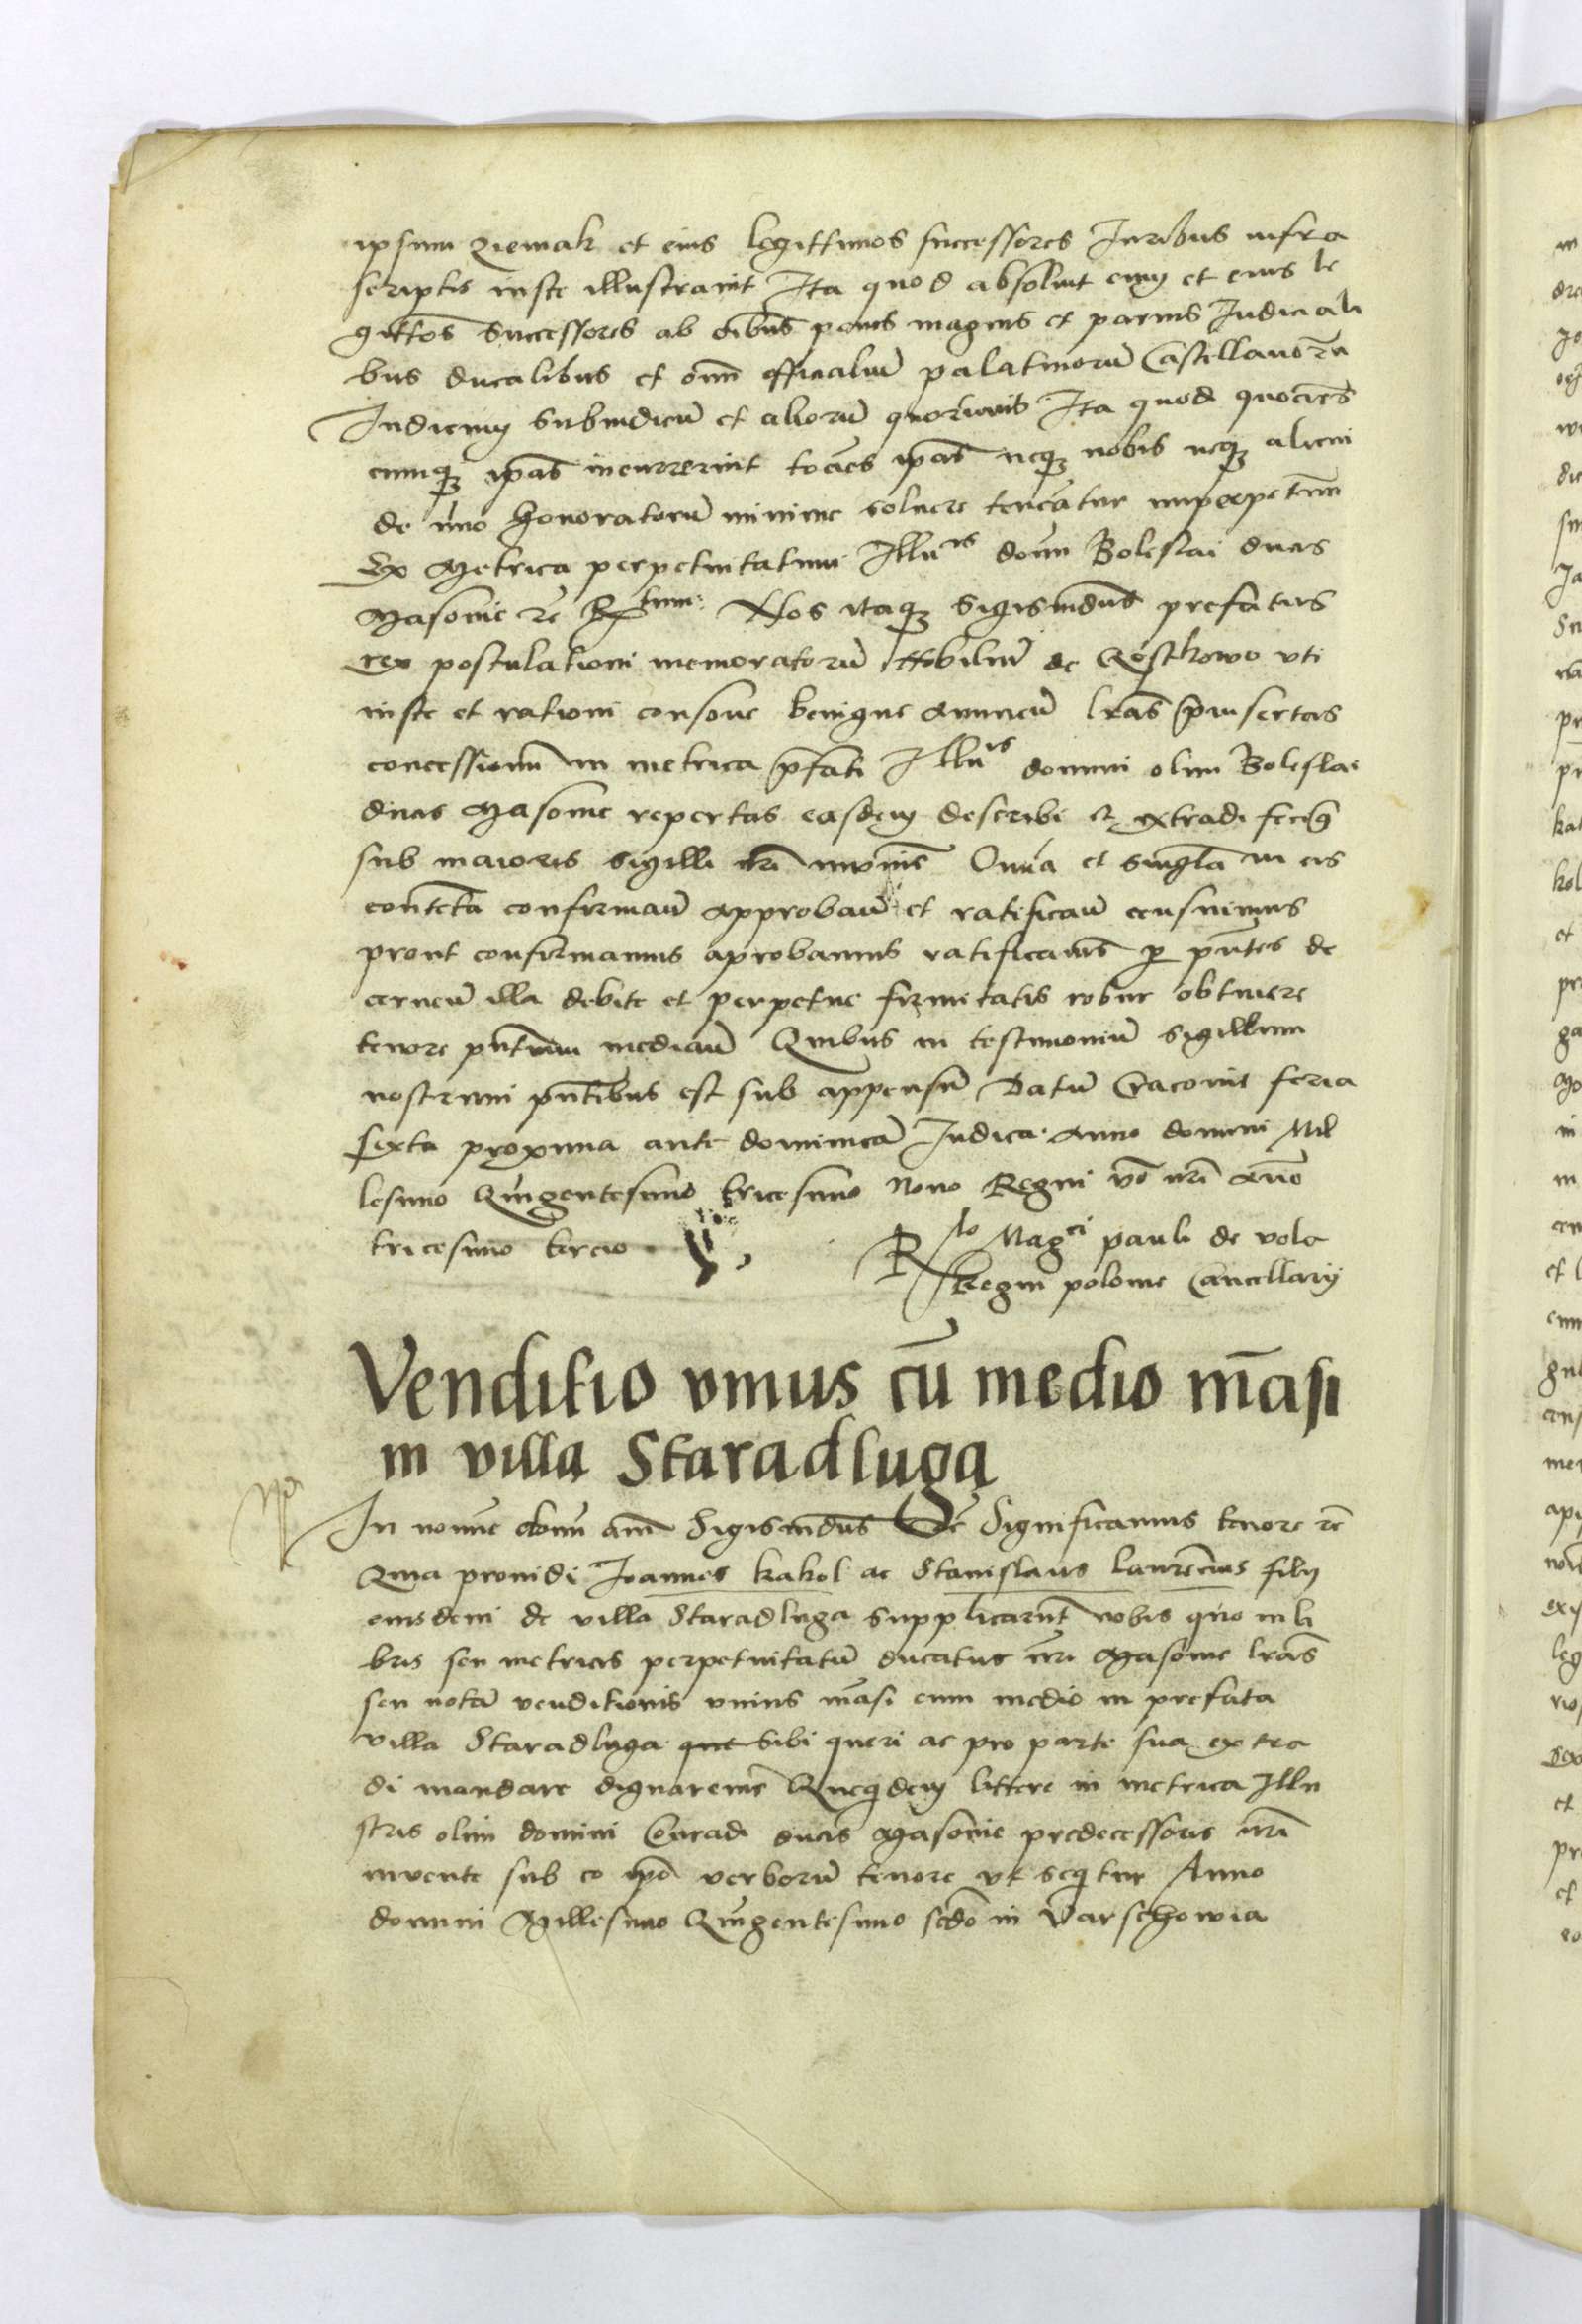 ipsum Ziemak et eius legittimos successores Juribus infra
scriptis iuste illustrauit Ita quod absoluit eum et eius le
gittos successores ab oibus penis magnis et paruis Judiciali
bus ducalibus et omn officialiu palatinoru Castellanoru
Judicum Subiudicu et alioru quoruuis Ita quod quocies
cumq ipas incurrerint tocies ipas neq nobis neq alicui
de uno honoratoru minime soluere teneatur imperpetuum
Ex Metrica perpetuitatum Illuris domi Boleslai ducis
Masouie rc Rptum. Nos itaq Sigismdus prefatus
rex postulationi memoratoru Nobiliu de Rosthkowo vti
iuste et rationi consone benigne annueu lras pinsertas
concessionu in metrica pfati Illuris domini olim Boleslai
ducis Masouie repertas easdem describi et extradi fecimus
sub maioris sigilli nri Omia et singla in eis
contenta confirmau approbau et ratificau censuimus
prout confirmamus aprobamus ratificams p pntes de
cerneu illa debite et perpetue firmitatis robur obtinere
tenore pntium mediau Quibus in testimoniu sigillum
nostrum pntibus est sub appensu Datu Cracouie feria
sexta proxima ante dominica Judica Anno domini Mil
lesimo Quingentesimo tricesimo Nono Regni vo nri Anno
tricesimo tercio
Rlo Magci pauli de vola
Regni polonie Cancellarij
Venditio vnius cu medio masi
in villa Staradluga
In nomine domi am Sigismdus Dei Significamus tenore rc
Quia prouidi Joannes kakol ac Stanislaus Laurencius filij
eiusdem de villa Staradluga supplicarunt nobis quo in li
bris seu metricis perpetuitatu ducatus nri Masouie lras
seu nota venditionis vnius masi cum medio in prefata
villa Staradluga que sibi queri ac pro parte sua extra
di mandare dignaremur Quequidem littere in metrica Illu
stris olim domini Conradi ducis Masouie predecessoris nri
invente sub eo ipo verboru tenore vt sequitur Anno
domini Millesimo Quingentesimo scdo in Varschowia